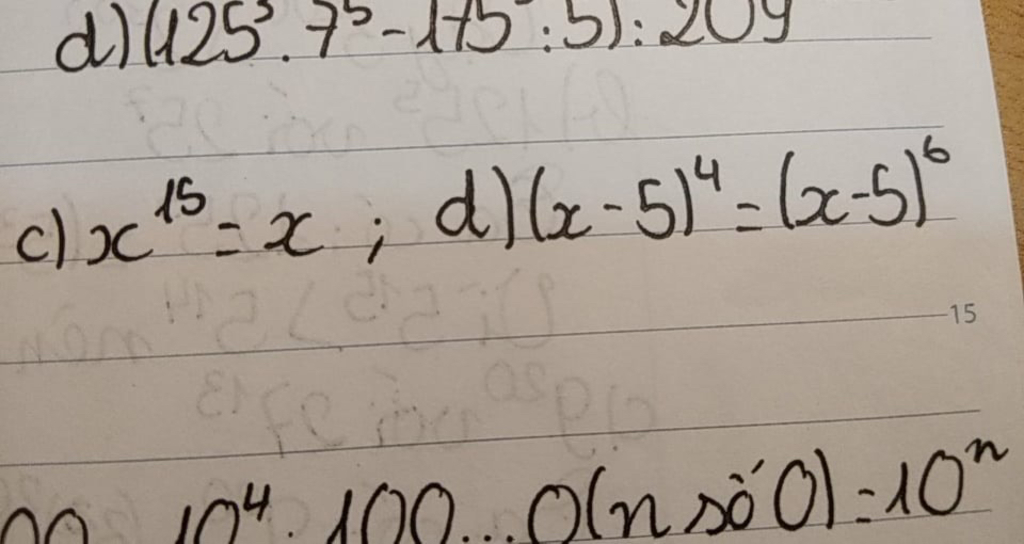 d) (125³ . 7⁵ - 175⁵ : 5) : 20
c) x¹⁵ = x ; d) (x - 5)⁴ = (x - 5)⁶
15
10⁴ . 100...0 (n số 0) = 10ⁿ